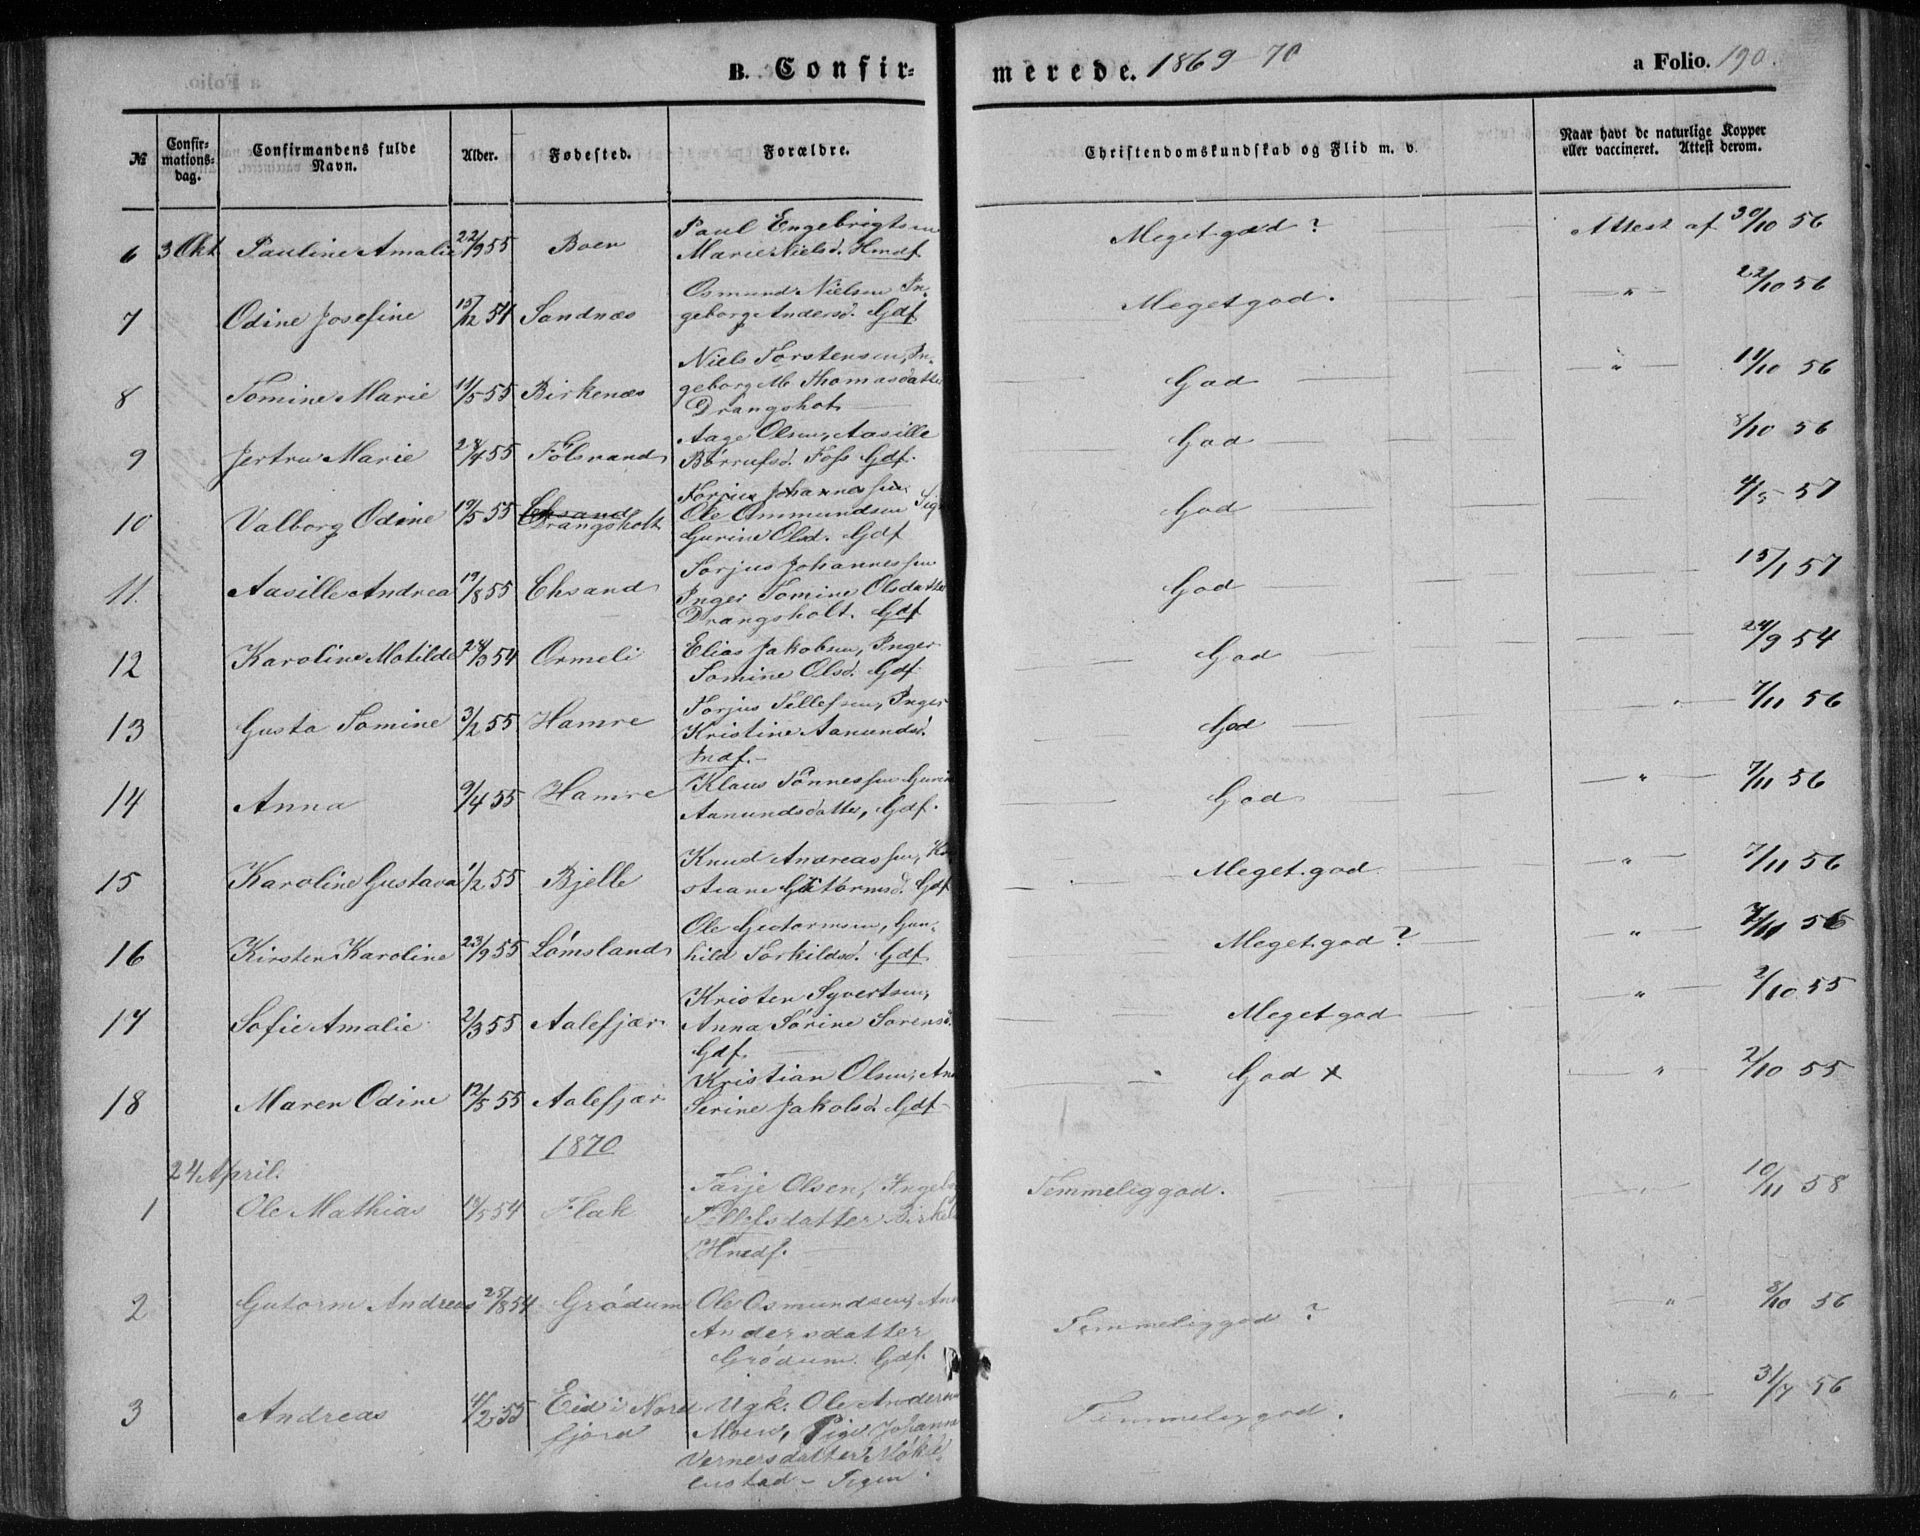 B. Confir-
merede. 1869-70
a Folio. 190.
№ Confir-mations-dag. Confirmandens fulde Navn. Alder. Fødested. Forældre. Christendomskundskab og Flid m. v. Naar havt de naturlige Kopper eller vaccineret. Attest derom.
6 3 Okt Pauline Amalie 22/9 55 Boen Paul Engebrigtsen Marie Nielsd. Hmdf Meget god ? Attest af 30/10 56
7 Odine Josefine 15/12 54 Sandnæs Osmund Nielsen In-
geborg Andersd. Gdf Meget god. " 22/10 56
8 Tomine Marie 11/5 55 Birkenæs Niels Torstensen, In-
geborg M. Thomasdatter
Drangsholt God " 11/10 56
9 Jertru Marie 28/4 55 Følsrand Aage Olsen, Aasille
Børrufsd. Foss Gdf. God 8/10 56
10 Valborg Odine 19/5 55 Eksand Drangsholt Torjus Johannessen
Ole Ommundsen Sig
Gurine Olsd. Gdf God 4/5 57
11. Aasille Andrea 19/8 55 Eksand Torjus Johannessen
Inger Tomine Olsdatter
Drangsholt. Gdf God 15/1 57
12 Karoline Matilde 28/3 54 Ormeli Elias Jakobsen, Inger
Tomine Olsd. Gdf God 24/9 54
13 Gusta Tomine 3/2 55 Hamre Torjus Tellefsen, Inger
Kristine Aanundsd.
Indf. God " 7/11 56
14 Anna 9/4 55 Hamre Klaus Tønnessen Gurin
Aanundsdatter, Gdf. God " 7/11 56
15 Karoline Gustava 1/2 55 Bjelle Knud Andreassen, Kri
stiane Gutormsd. Gdf Meget god " 7/11 56
16 Kirsten Karoline 23/9 55 Lømsland Ole Gutormsen, Gun-
hild Torkildsd. Gdf Meget god ? " 7/11 56
17 Sofie Amalie 2/3 55 Aalefjær Kristen Syvertsen,
Anna Sørine Sørensd.
Gdf Meget god " 2/10 55
18 Maren Odine 12/5 55 Aalefjær Kristian Olsen, An
Serine Jakobsd. Gdf " God x " 2/10 55
1870
24 April.
1 Ole Mathias 18/5 54 Flak Tarje Olsen, Ingeb
Tellefsdatter Birkel
Hmdf. Temmelig god. " 10/11 58
2 Gutorm Andreas 25/8 54 Grødum Ole Osmundsen, Ann
Andersdatter
Grødum. Gdf. Temmelig god ? " 8/10 56
3 Andreas 4/2 55 Eid i Nord
fjord Ugk. Ole Anders
Moen, Pige Johanna
Vernersdatter Møkle
enstad - Pigen. Temmelig god. " 31/7 56